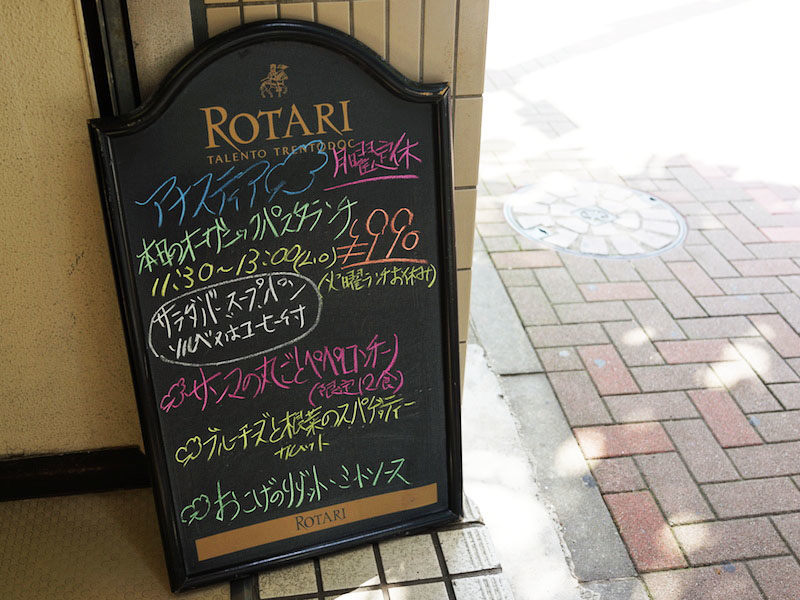 ROTARI
TALENTO TRENTODOC
アナスティア
月曜定休
本日のオーガニックパスタランチ
11:30~13:00(L.O) ¥990
(火曜ランチお休み)
サラダバー・スープ・パン
ソルベ又はコーヒー付
サンマの丸ごとペペロンチーノ
(限定12食)
ブルーチーズと根菜のスパゲッティー
おこげのリゾット・ミートソース
ROTARI